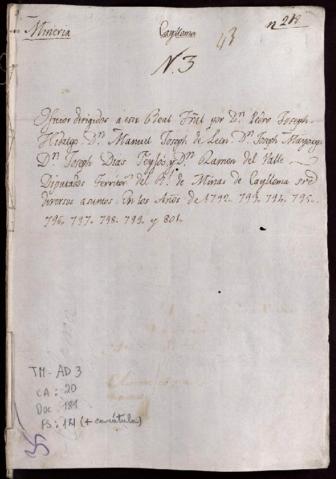 Mineria Caylloma nº 218
43
N. 3
Oficios dirigidos a este Real Tral. por Dn. Pedro Joseph
Hidalgo Dn. Manuel Joseph de Leon Dn. Joseph
Dn. Joseph Dias y Dn. Ramon del Valle
Diputados Territor. del Rl. de Minas de Caylloma sre
diversos asuntos. En los Años de 1792. 793. 794. 795.
796. 797. 798. 799. y 801.
TM - AD 3
CA : 20
Doc : 181
PS : 121 (+ carátula)